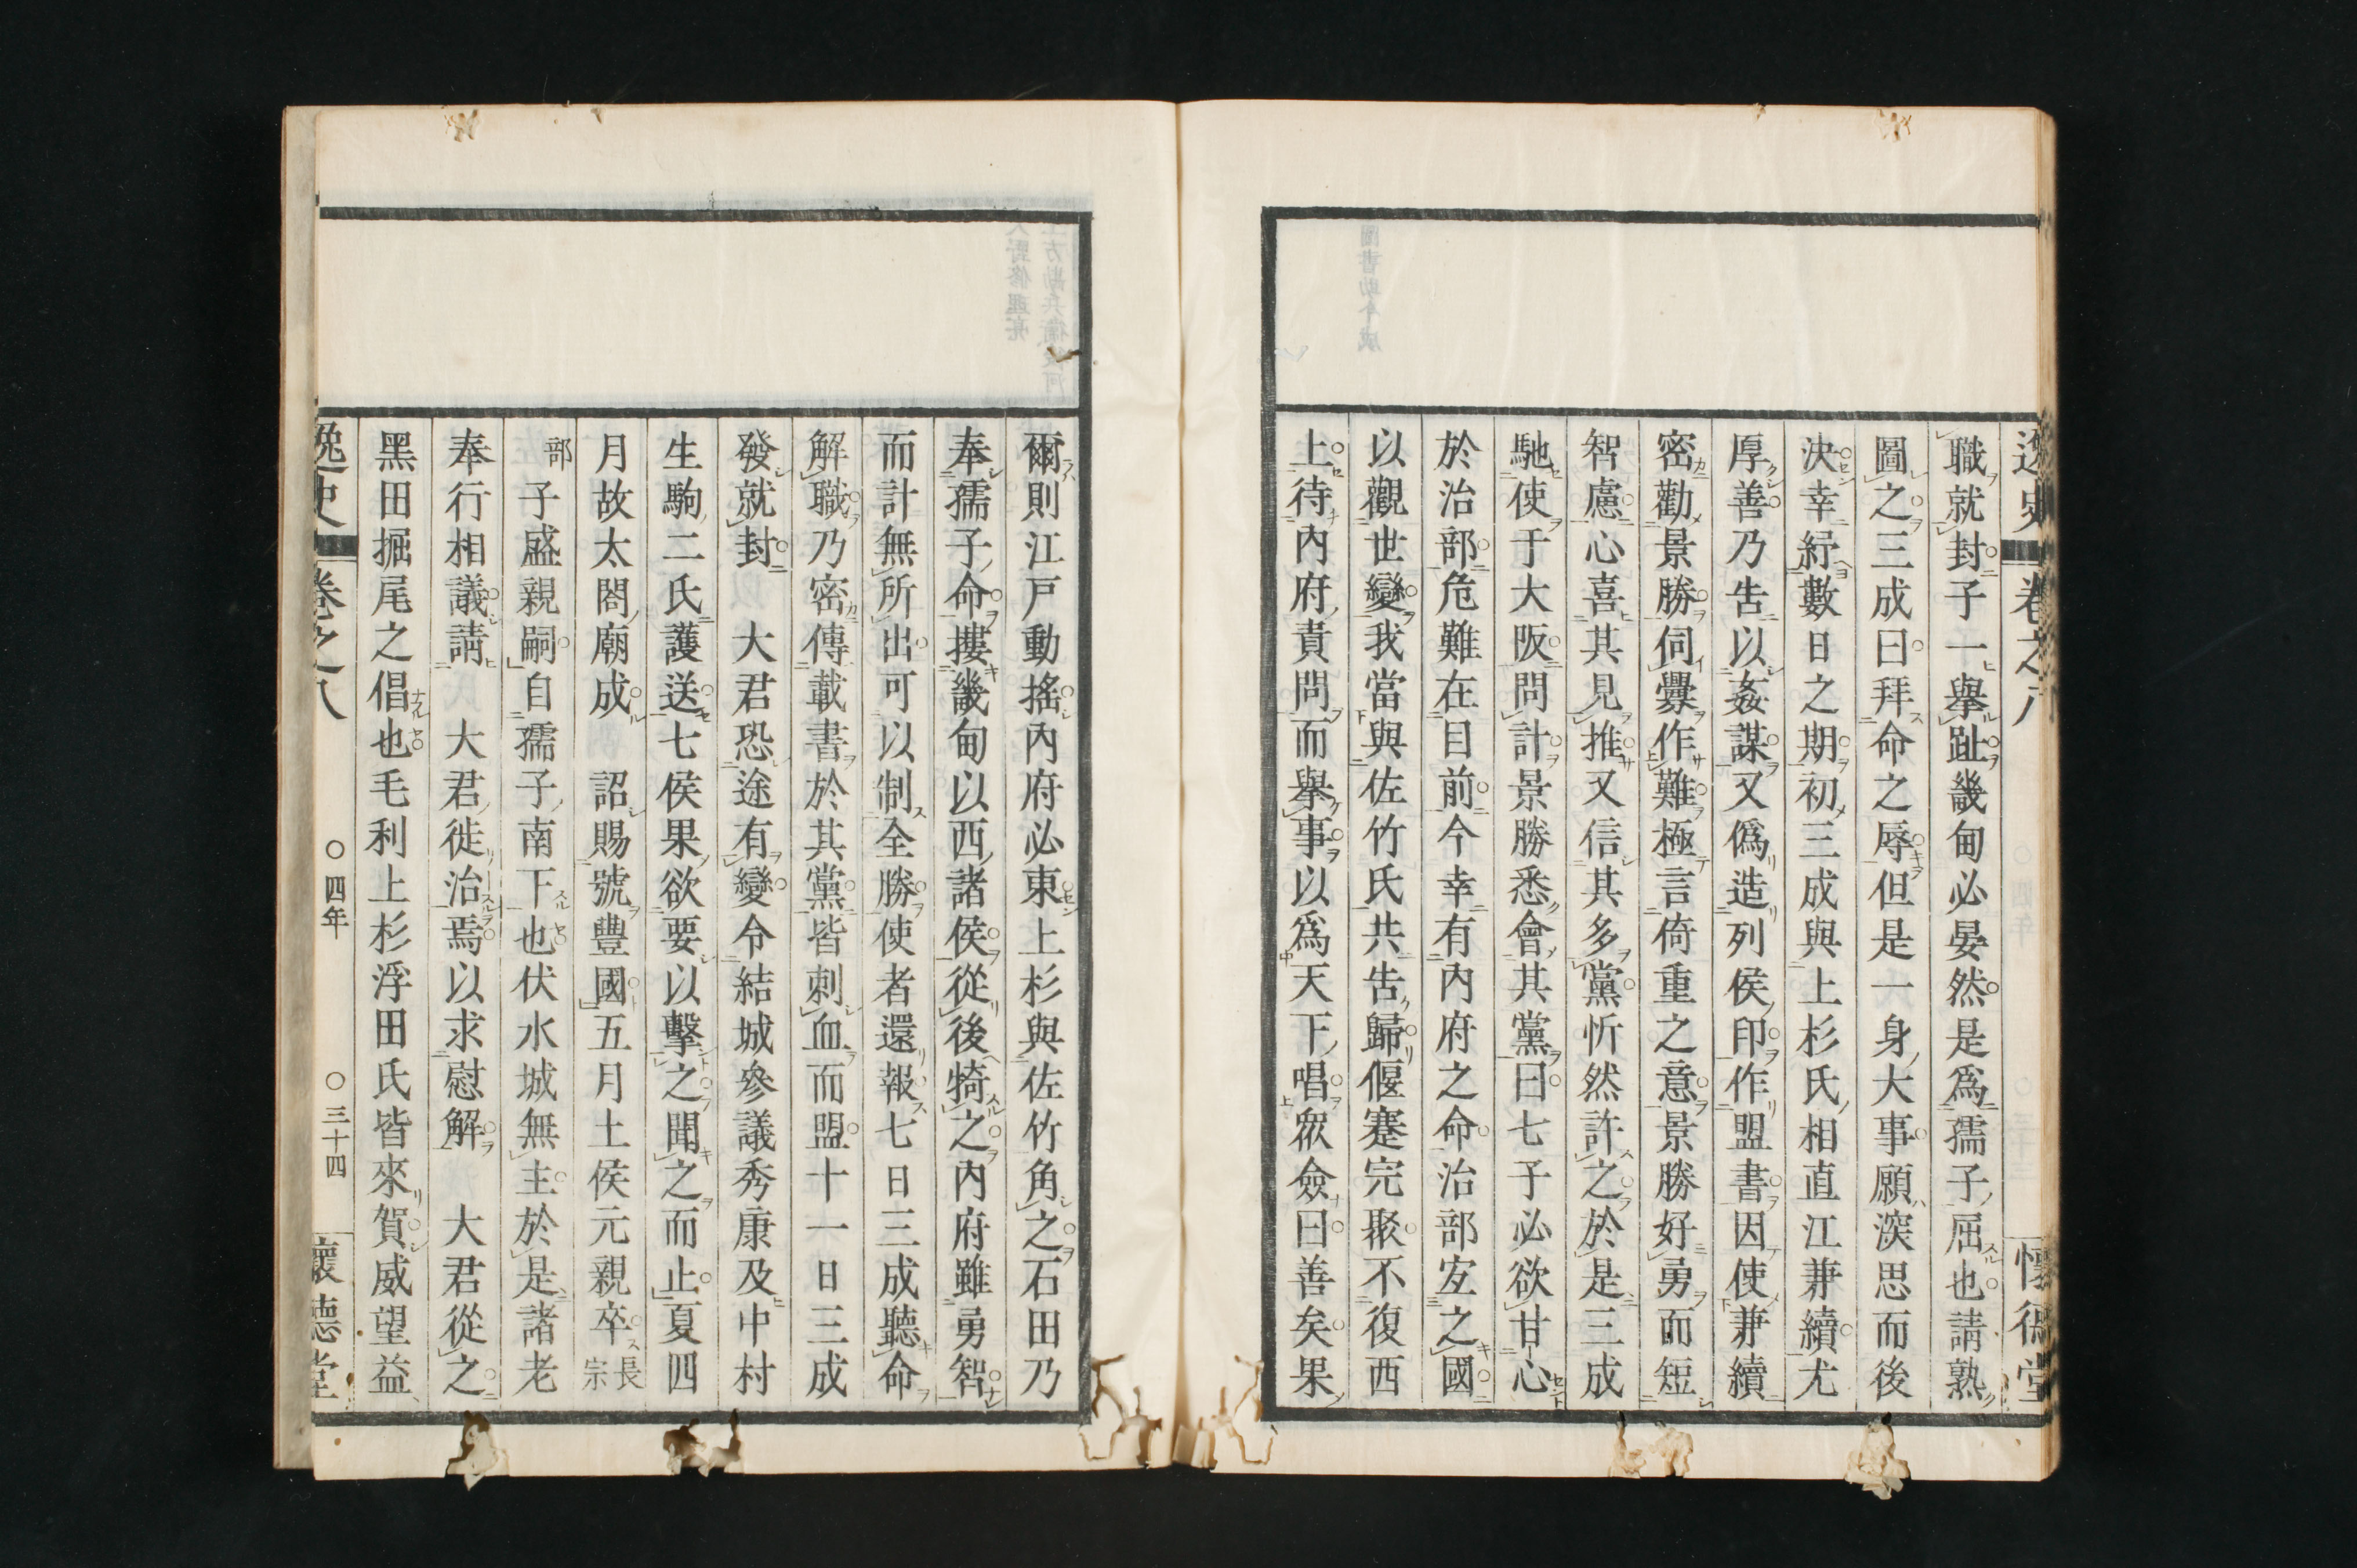 逸史 卷之八 懷德堂
職就封子一擧趾畿甸必晏然是爲孺子屈也請熟
圖之三成曰拜命之辱但是一身大事願深思而後
決幸紓數日之期初三成與上杉氏相直江兼續尤
厚善乃告以姦謀又僞造列侯印作盟書因使兼續
密勸景勝伺釁作難極言倚重之意景勝好勇而短
智慮心喜其見推又信其多黨忻然許之於是三成
馳使于大阪問計景勝悉會其黨曰七子必欲甘心
於治部危難在目前今幸有內府之命治部宜之國
以觀世變我當與佐竹氏共告歸偃蹇完聚不復西
上待內府責問而擧事以爲天下唱衆僉曰善矣果
爾則江戶動搖內府必東上杉與佐竹角之石田乃
奉孺子命摟畿甸以西諸侯從後犄之內府雖勇智
而計無所出可以制全勝使者還報七日三成聽命
解職乃密傳載書於其黨皆刺血而盟十一日三成
發就封 大君恐途有變令結城參議秀康及中村
生駒二氏護送七侯果欲要以擊之聞之而止夏四
月故太閤廟成 詔賜號豐國五月土侯元親卒長宗
部子盛親嗣自孺子南下也伏水城無主於是諸老
奉行相議請 大君徙治焉以求慰解 大君從之
黑田掘尾之倡也毛利上杉浮田氏皆來賀威望益
逸史 卷之八 ○四年 ○三十四 懷德堂